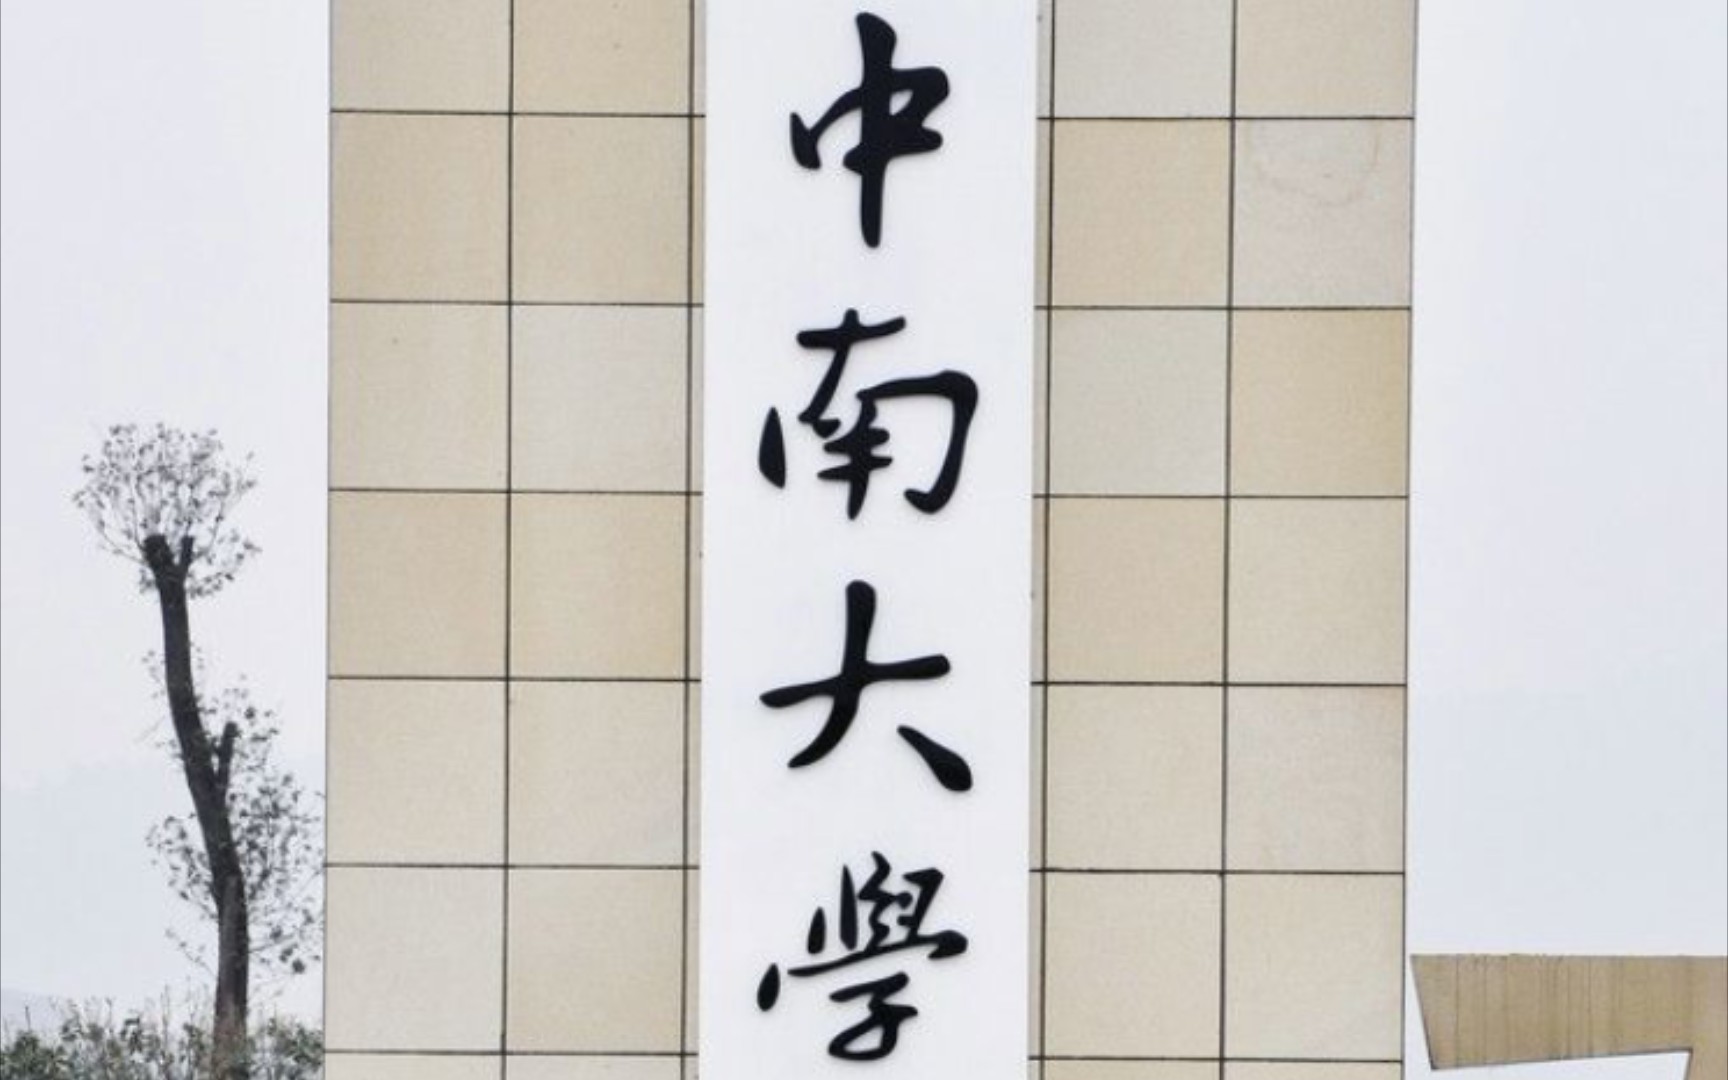 中南大學